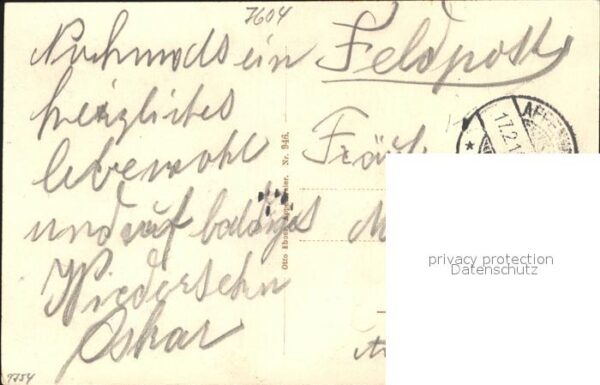 7604
Nochmals ein
herzliches
lebewohl
und auf baldiges
Wiedersehn
Oskar
9754
Nr. 946.
Feldpost
Fräul
17.2.1
APPENW
privacy protection
Datenschutz